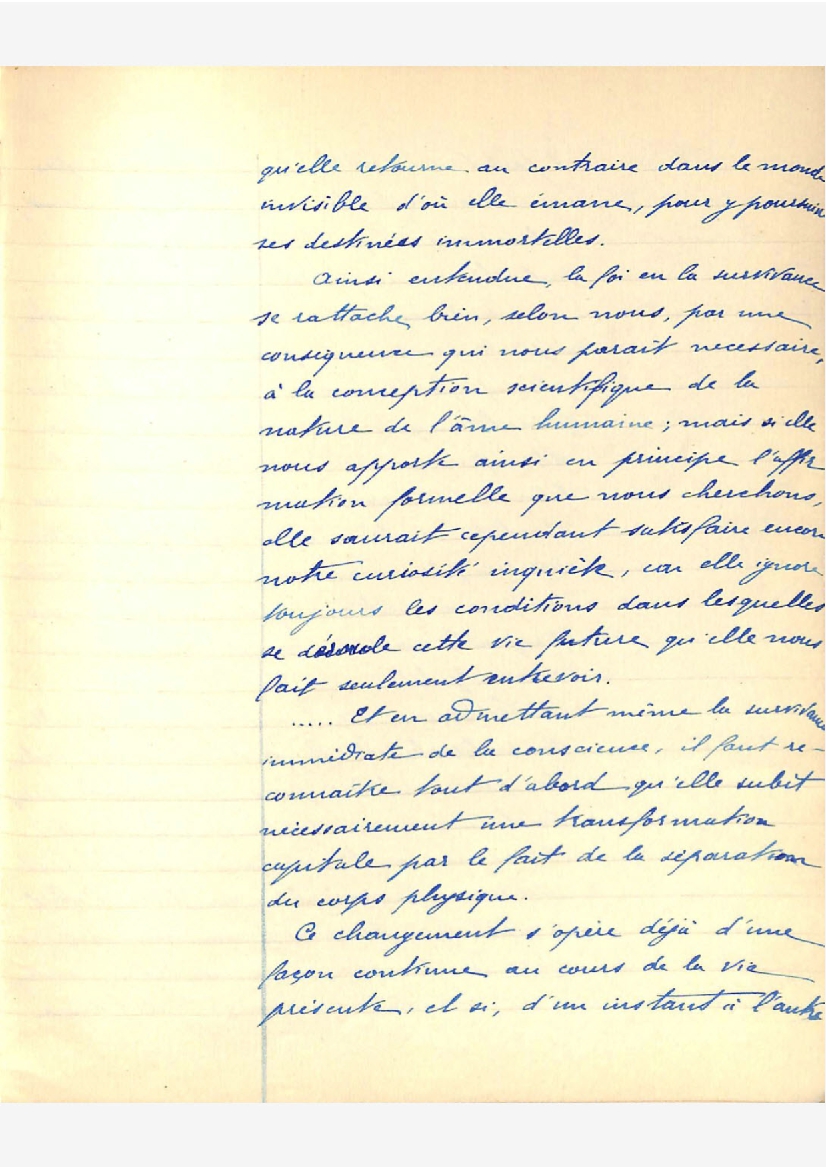 qu'elle retourne au contraire dans le monde
invisible d'où elle émane, pour y poursuivre
ses destinées immortelles.
Ainsi entendue, la foi en la survivance
se rattache bien, selon nous, par une
conséquence qui nous parait necessaire,
à la conception scientifique de la
nature de l'âme humaine ; mais si elle
nous apporte ainsi en principe l'affir
mation formelle que nous cherchons,
elle saurait cependant satisfaire encore
notre curiosité inquiète, car elle ignore
toujours les conditions dans lesquelles
se déroule cette vie future qu'elle nous
fait seulement entrevoir.
..... Et en admettant même la survivance
immédiate de la conscience, il faut re-
connaître tout d'abord qu'elle subit
nécessairement une transformation
capitale par le fait de la séparation
du corps physique.
Ce changement s'opère déjà d'une
façon continue au cours de la vie
présente, et si, d'un instant à l'autre